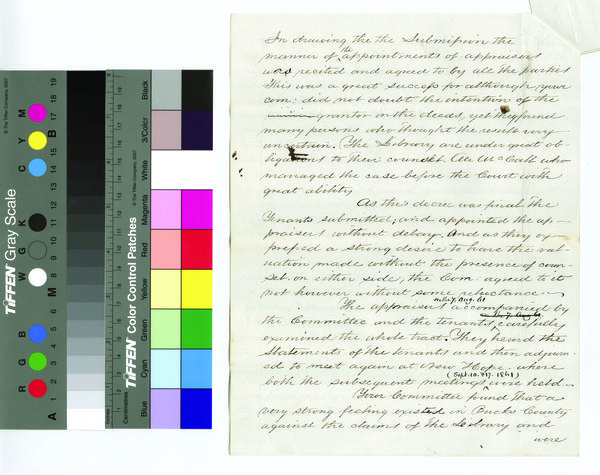 © The Tiffen Company, 2007
TIFFEN Gray Scale
R G B W G K C Y M
A 1 2 3 4 5 6 M 8 9 10 11 12 13 14 15 B 17 18 19
Inches
Centimetres
TIFFEN Color Control Patches
© The Tiffen Company, 2007
Blue
Cyan
Green
Yellow
Red
Magenta
White
3/Color
Black
In drawing the the Submission the
manner of the appointments of appraisers
was recited and agreed to by all the parties
This was a great success for although your
com: did not doubt the intention of the
grantor in the deeds, yet they found
many persons who thought the result very
uncertain. The Library are under great ob-
ligations to their counsel Mr. McCall who
managed the case before the Court with
great ability
As the decree was final the
Tenants submitted, and appointed the ap-
praisers without delay. And as they ex-
pressed a strong desire to have the val-
uation made without the presence of coun-
sel on either side, the Com- agreed to it
not however without some reluctance-
The appraisers accompanied by
the Committee and the tenants, carefully
examined the whole tract. They heard the
Statements of the tenants and then adjourn-
ed to meet again at New Hope where
both the subsequent meetings were held-
(Sept. 10. &17. 1861)
Your Committee found that a
very strong feeling existed in Bucks County
against the claims of the Library and
were